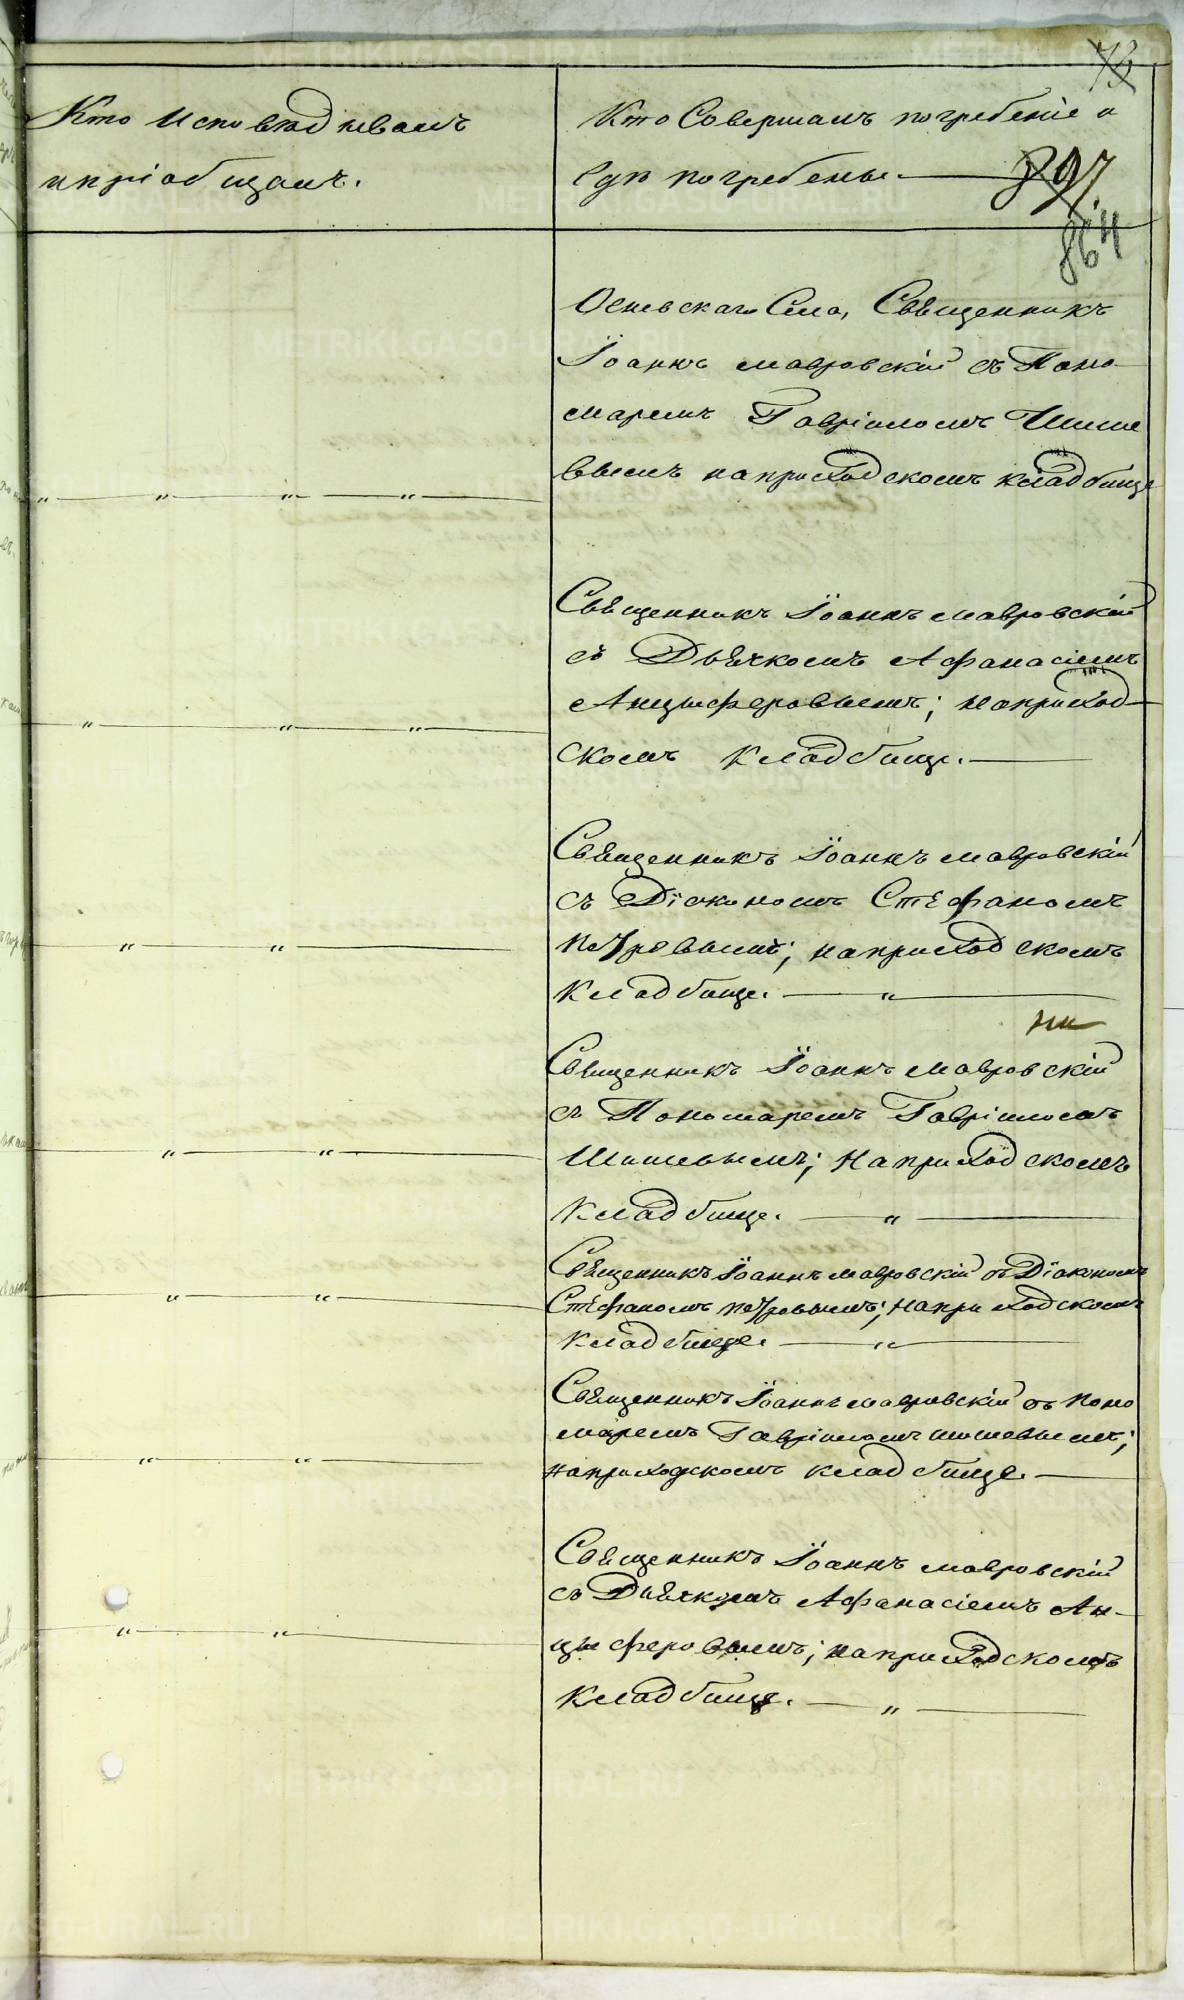 73
Кто исповѣдывалъ
и пріобщалъ.
Кто Совершалъ погребеніе и
гдѣ погребены.
897.
864
Села, Священникъ
Іоаннъ Мавровскій съ Поно-
маремъ Гавріиломъ Шише
вымъ на приходскомъ кладбище
Священникъ Іоаннъ Мавровскій
съ Дьячкомъ Афанасіемъ
Анцыферовымъ; на приход-
скомъ кладбище.
Священникъ Іоаннъ Мавровскій
съ Діакономъ Стефаномъ
Петровымъ; на приходскомъ
кладбище. „
Священникъ Іоаннъ Мавровскій
съ Пономаремъ Гавріиломъ
Шишевымъ; на приходскомъ
кладбище. „
Священникъ Іоаннъ Мавровскій съ Діакономъ
Стефаномъ Петровымъ; на приходскомъ
кладбище. „
Священникъ Іоаннъ Мавровскій съ Поно
маремъ Гавріиломъ Шишевымъ;
на приходскомъ кладбище.
Священникъ Іоаннъ Мавровскій
съ Дьячкомъ Афанасіемъ Ан-
цыферовымъ; на приходскомъ
кладбище. „
METRIKI.GASO-URAL.RU